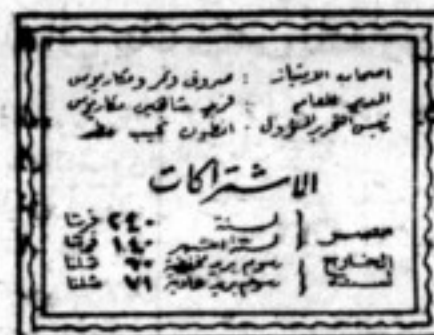 اصحاب الامتياز : صروف ونمر ومكاريوس
المدير العام : فريد شاهين مكاريوس
رئيس التحرير المسؤول : انطون نجيب مطر
الاشتراكات
مصر { لسنة ٢٤٠ قرشا
لستة اشهر ١٤٠ قرشا
الخارج لسنة { رسوم بريد مخفضة ٦٠ شلنا
رسوم بريد عادية ٧٦ شلنا